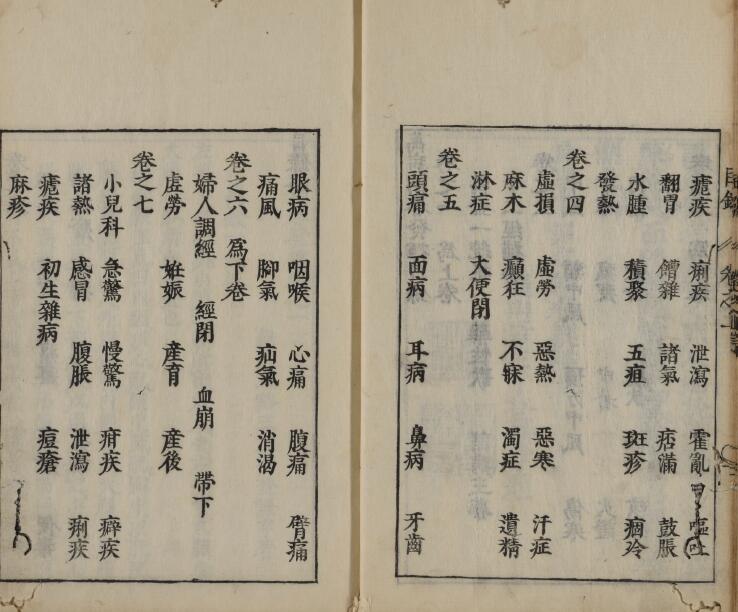 瘧疾 痢疾 泄瀉 霍亂 嘔吐
翻胃 饐雜 諸氣 痞滿 鼓脹
水腫 積聚 五疸 斑疹 痼冷
發熱
卷之四
虛損 虛勞 惡熱 惡寒 汗症
麻木 癲狂 不寐 濁症 遺精
淋症 大便閉
卷之五
頭痛 面病 耳病 鼻病 牙齒
眼病 咽喉 心痛 腹痛 臂痛
痛風 脚氣 疝氣 消渴
卷之六 爲下卷
婦人調經 經閉 血崩 帶下
虛勞 姙娠 產育 產後
卷之七
小兒科 急驚 慢驚 疳疾 癖疾
諸熱 感冒 腹脹 泄瀉 痢疾
瘧疾 初生雜病 痘瘡
麻疹